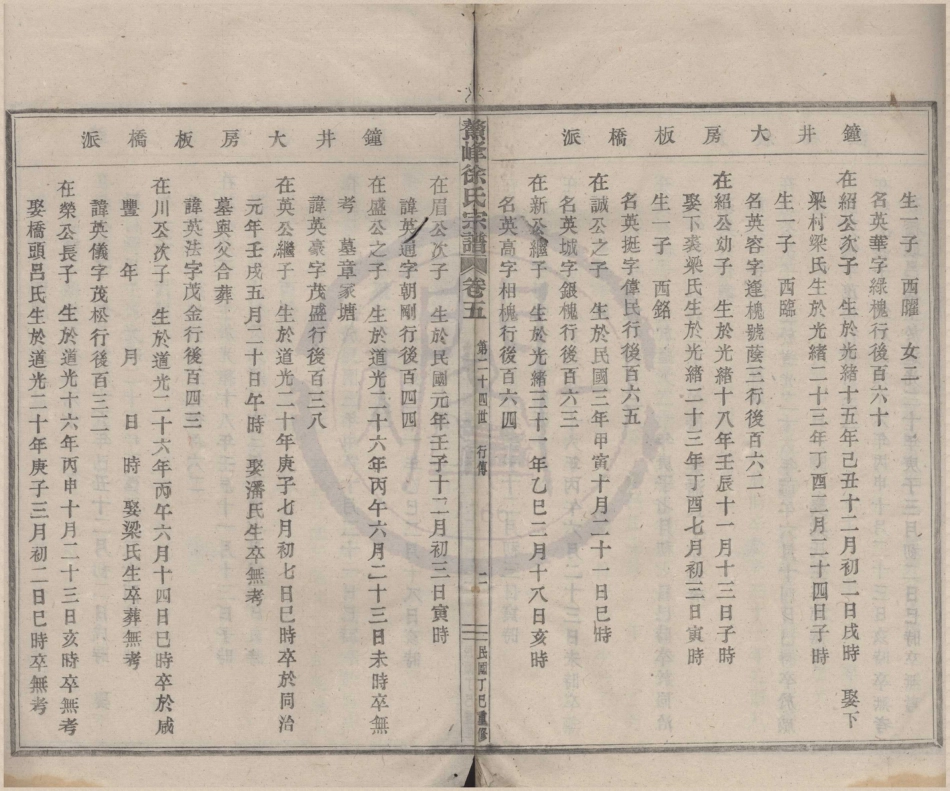 鐘井大房板橋派
生一子　西曜　女二
名英華字綠槐行後百六十
在紹公次子　生於光緒十五年己丑十二月初二日戌時　娶下
梁村梁氏生於光緒二十三年丁酉二月二十四日子時
生一子　西臨
名英容字逢槐號蔭三行後百六二
在紹公幼子　生於光緒十八年壬辰十一月十三日子時
娶下裘梁氏生於光緒二十三年丁酉七月初三日寅時
生一子　西銘
名英挺字偉民行後百六五
在誠公之子　生於民國三年甲寅十月二十一日巳時
名英城字銀槐行後百六三
在新公繼子　生於光緒三十一年乙巳二月十八日亥時
名英高字相槐行後百六四
鰲峰徐氏宗譜　卷五　第二十四世　行傳　二　民國丁巳重修
鐘井大房板橋派
在眉公次子　生於民國元年壬子十二月初三日寅時
諱英通字朝剛行後百四四
在盛公之子　生於道光二十六年丙午六月二十三日未時卒無
考　墓章家塘
諱英豪字茂盛行後百三八
在英公繼子　生於道光二十年庚子七月初七日巳時卒於同治
元年壬戌五月二十日午時　娶潘氏生卒無考
墓與父合葬
諱英法字茂金行後百四三
在川公次子　生於道光二十六年丙午六月十四日巳時卒於咸
豐　年　月　日　時　娶梁氏生卒葬無考
諱英儀字茂松行後百三二
在榮公長子　生於道光十六年丙申十月二十三日亥時卒無考
娶橋頭呂氏生於道光二十年庚子三月初二日巳時卒無考